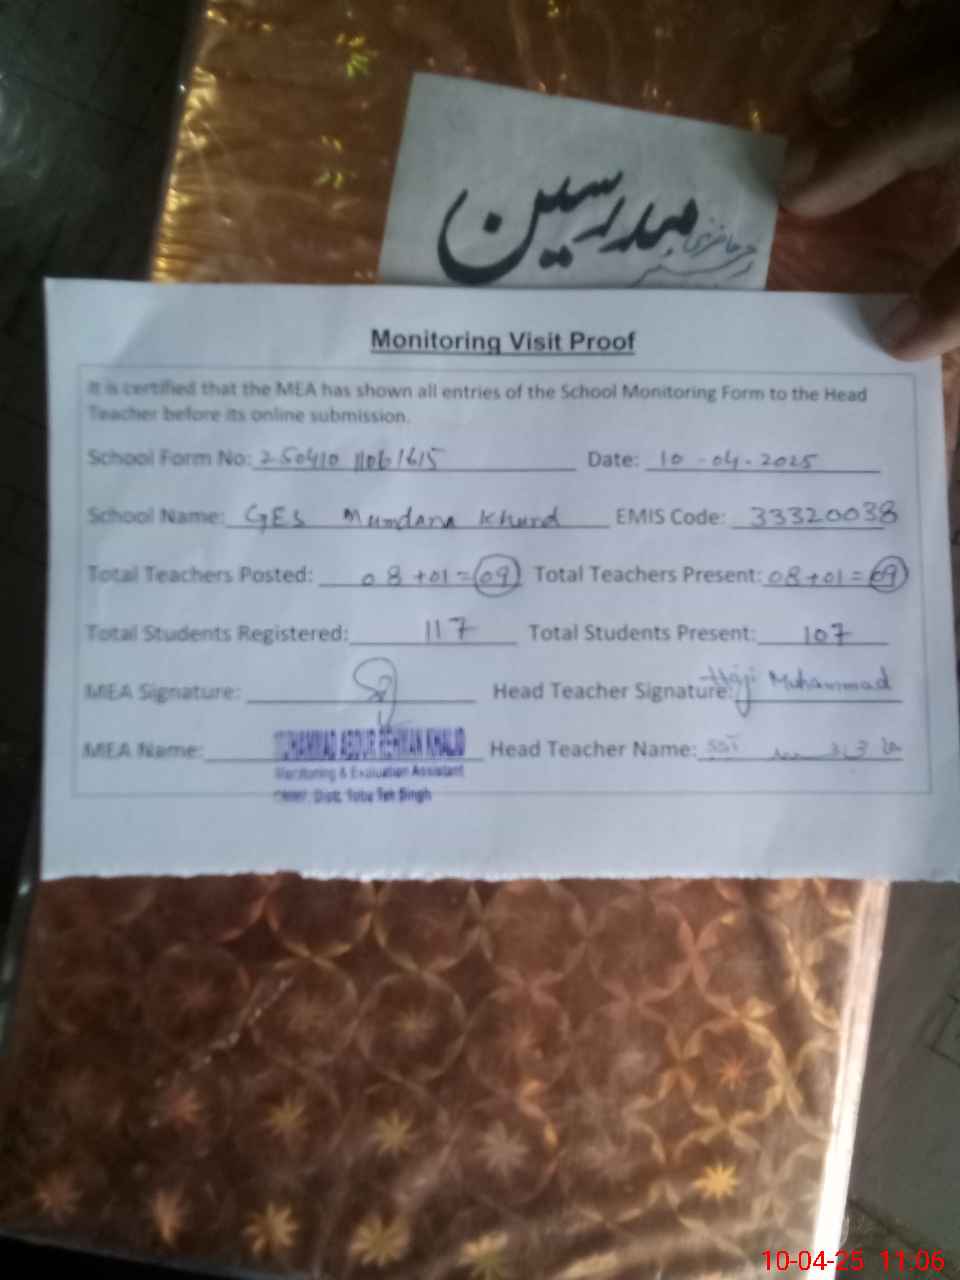 مدرسین
حاضری
Monitoring Visit Proof
It is certified that the MEA has shown all entries of the School Monitoring Form to the Head
Teacher before its online submission.
School Form No: 250410 11061615 Date: 10-04-2025
School Name: GES Mundana Khurd EMIS Code: 33320038
Total Teachers Posted: 08+01=09 Total Teachers Present: 08+01=09
Total Students Registered: 117 Total Students Present: 107
MEA Signature: Head Teacher Signature: Haji Muhammad
MEA Name: MUHAMMAD ABDUR REHMAN KHALID Head Teacher Name: SST
Monitoring & Evaluation Assistant
Distt. Toba Tek Singh
10-04-25 11:06